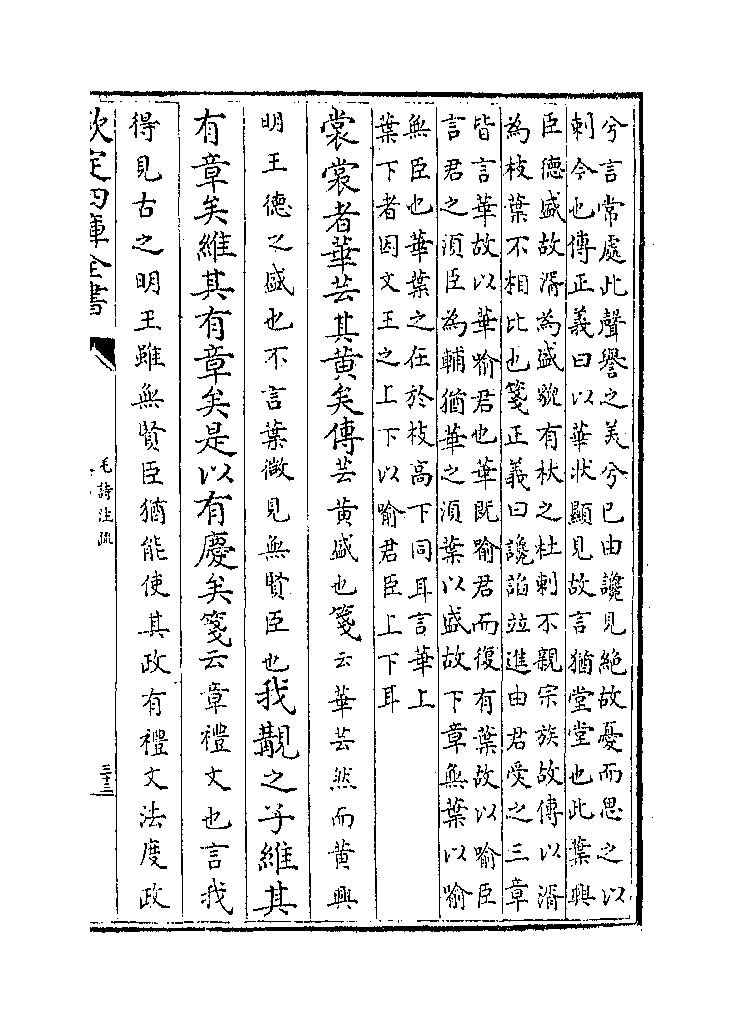 兮言常處此聲譽之美兮已由讒見絶故憂而思之以
刺今也傳正義曰以華狀顯見故言猶堂堂也此葉興
臣德盛故湑為盛貌有杕之杜刺不親宗族故傳以湑
為枝葉不相比也箋正義曰讒諂並進由君受之三章
皆言華故以華喻君也華既喻君而復有葉故以喻臣
言君之須臣為輔猶華之須葉以盛故下章無葉以喻
無臣也華葉之在於枝高下同耳言華上
葉下者因文王之上下以喻君臣上下耳
裳裳者華芸其黄矣傳芸黄盛也箋云華芸然而黄興
明王德之盛也不言葉微見無賢臣也我覯之子維其
有章矣維其有章矣是以有慶矣箋云章禮文也言我
得見古之明王雖無賢臣猶能使其政有禮文法度政
欽定四庫全書
毛詩注疏
三十三